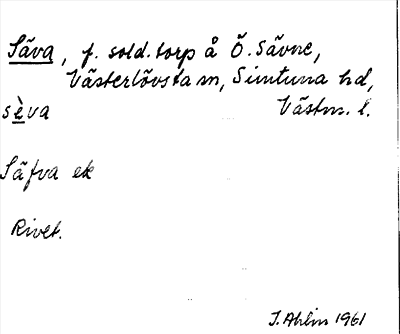 Säva, f. sold.torp å Ö. Sävne,
Västerlövsta sn, Simtuna hd,
sèva Västm. l.
Säfva ek
Rivet.
I. Ahlin 1961